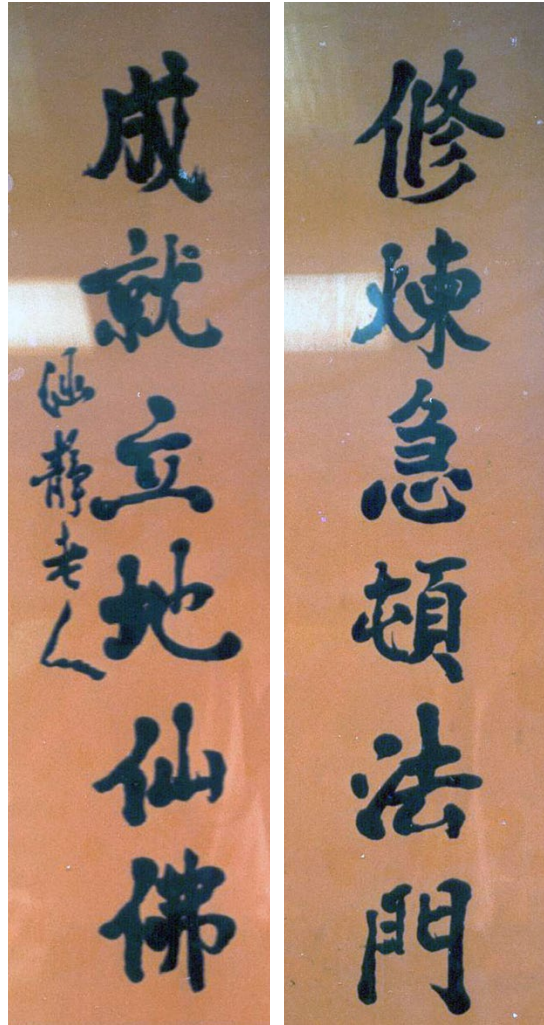 修煉急頓法門
成就立地仙佛
仙靜老人